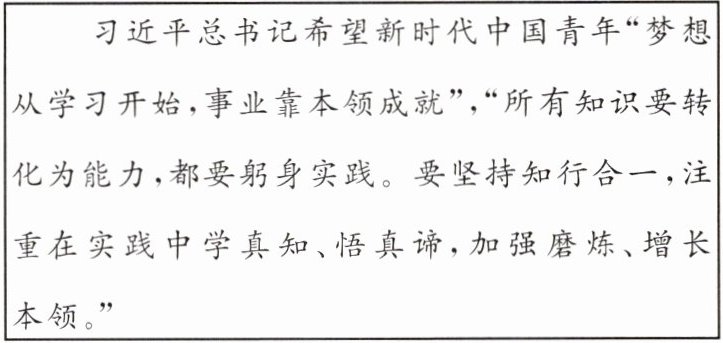 习近平总书记希望新时代中国青年“梦想
从学习开始,事业靠本领成就”,“所有知识要转
化为能力,都要躬身实践。要坚持知行合一,注
重在实践中学真知、悟真谛,加强磨炼、增长
本领。”